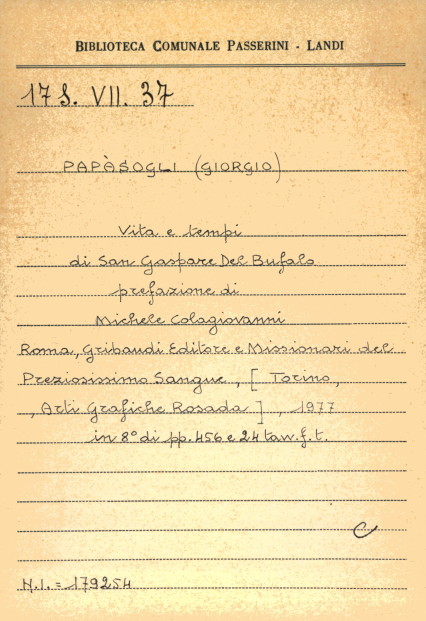 BIBLIOTECA COMUNALE PASSERINI - LANDI
17 S. VII. 37
PAPÀSOGLI (GIORGIO)
Vita e tempi
di San Gaspare Del Bufalo
prefazione di
Michele Colagiovanni
Roma, Gribaudi Editore e Missionari del
Preziosissimo Sangue, [ Torino,
, Arti Grafiche Rosada ] , 1977
in 8° di pp. 456 e 24 tavv. f. t.
C
N.I. = 179254